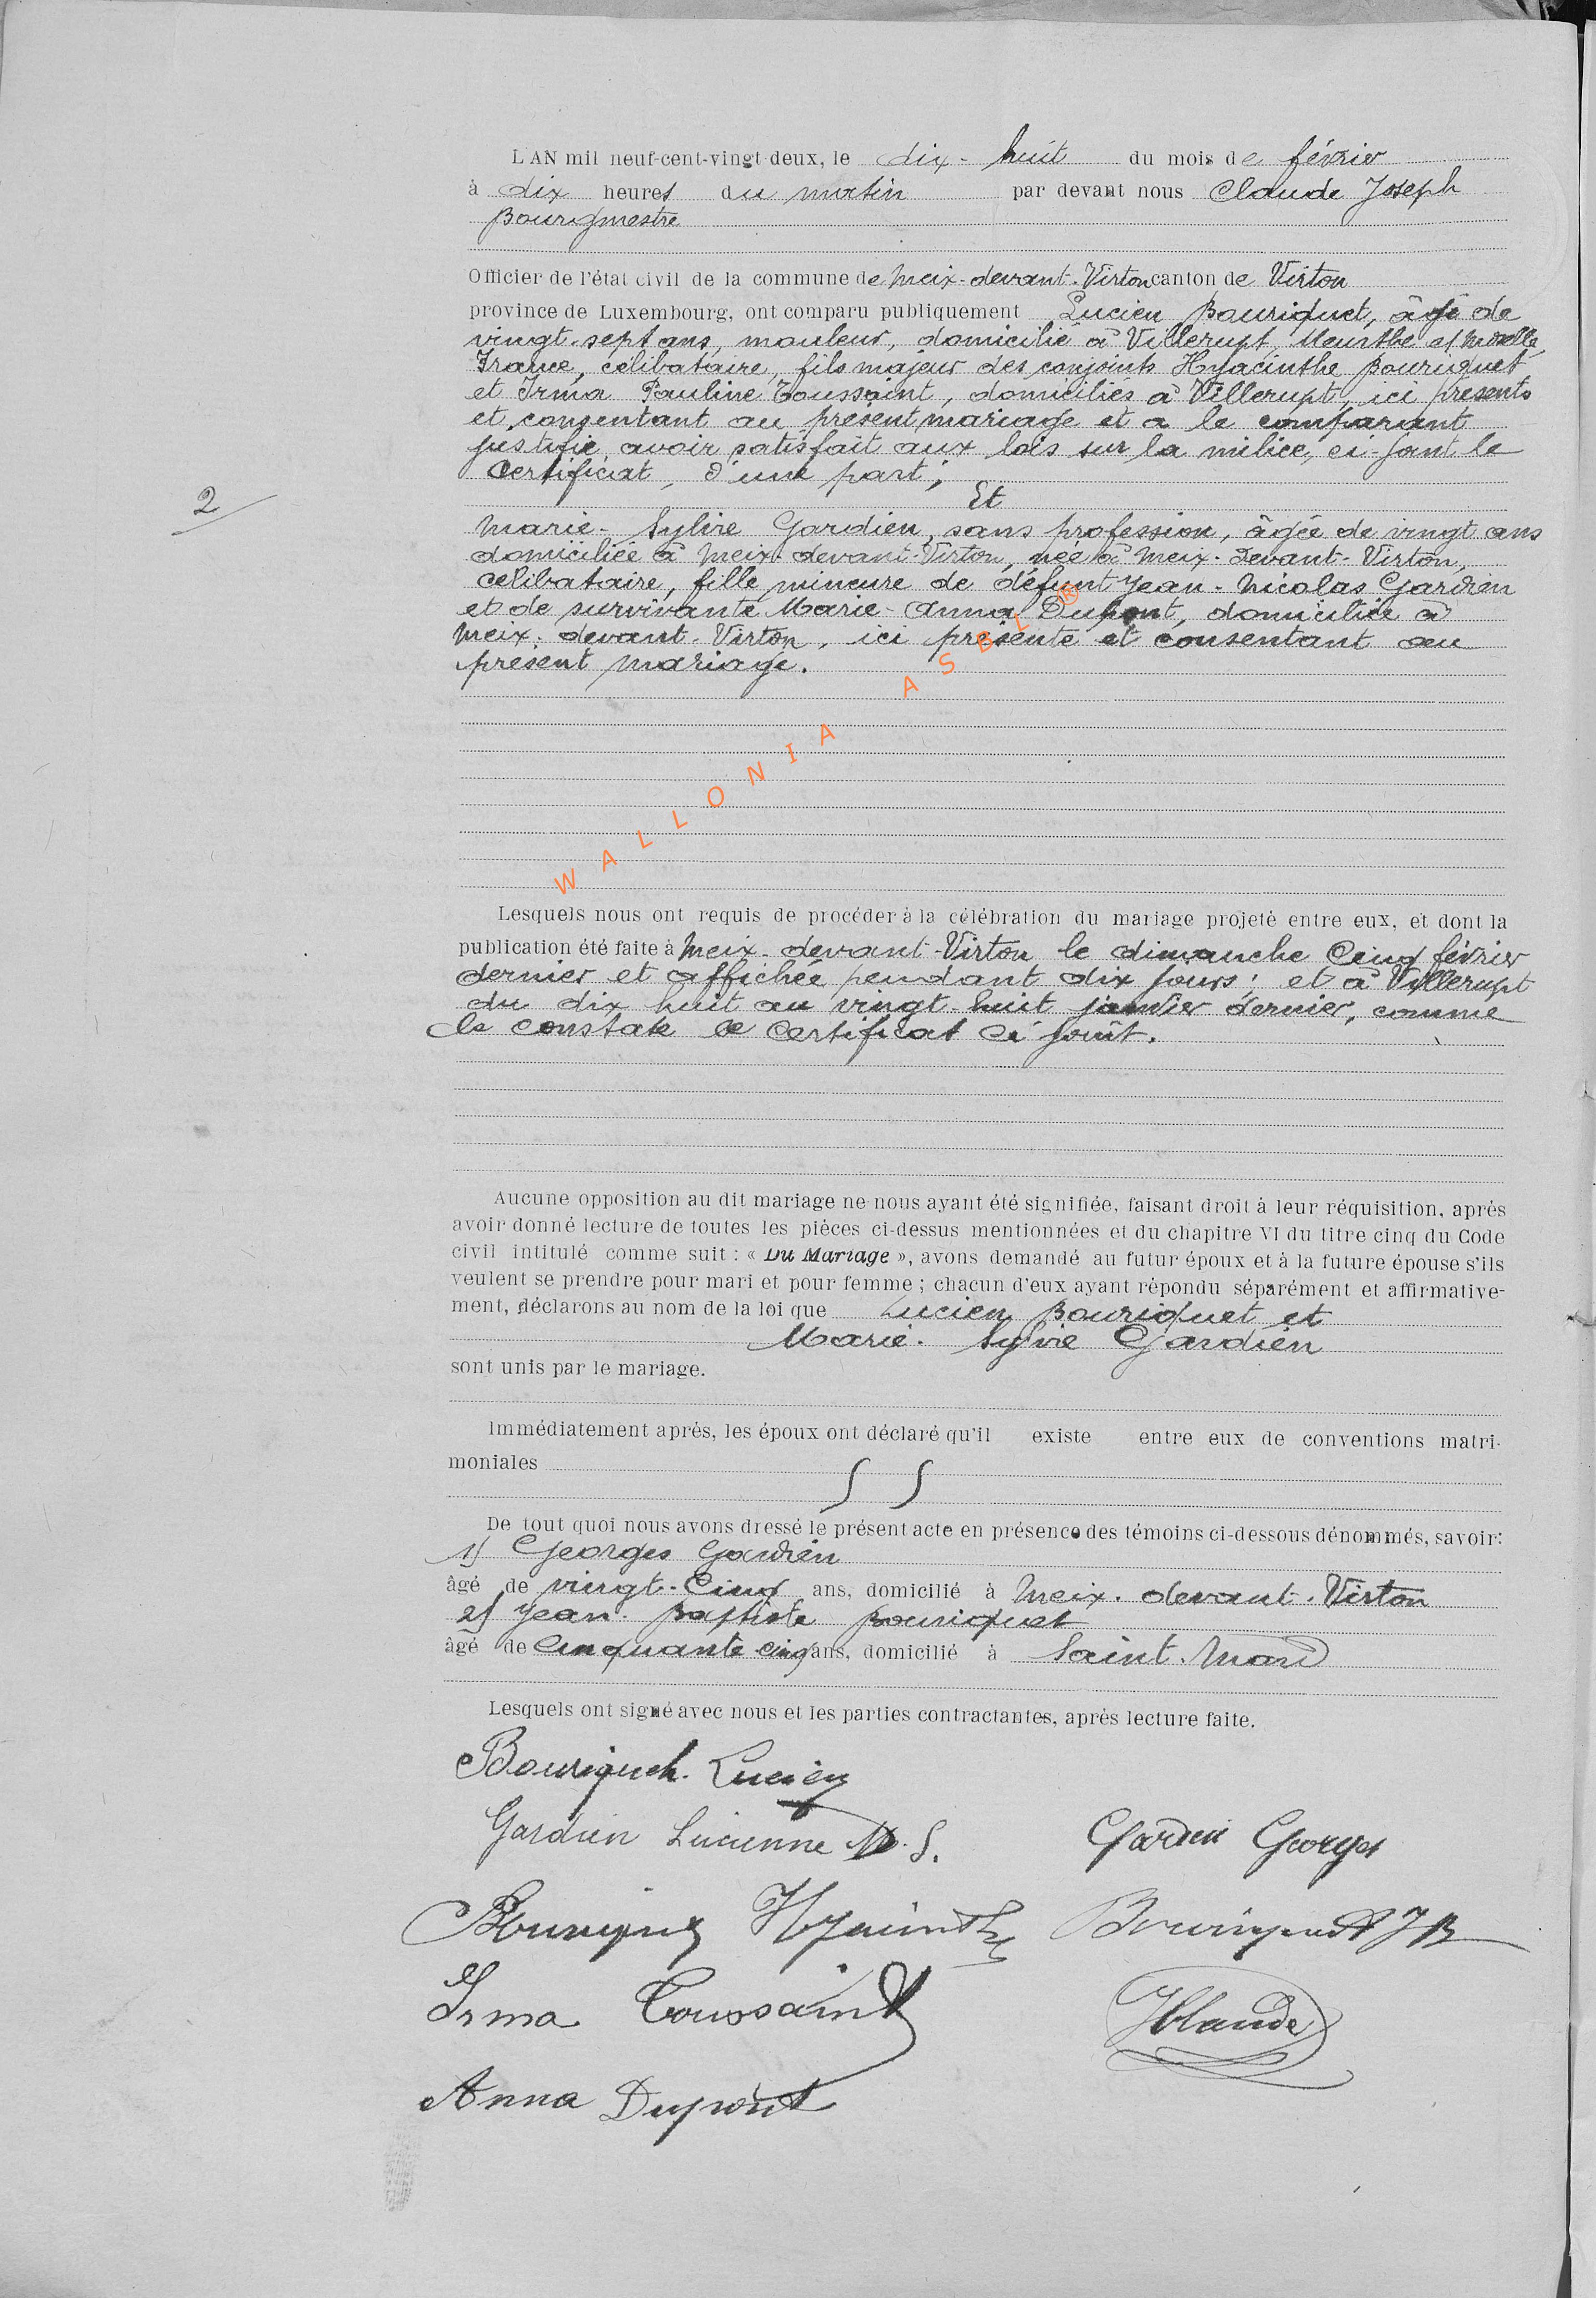 L'AN mil neuf-cent-vingt-deux, le dix-huit du mois de février
à dix heures du matin par devant nous Claude Joseph
Bourgmestre
Officier de l'état civil de la commune de Meix-devant-Virton canton de Virton
province de Luxembourg, ont comparu publiquement Lucien Bouriquet, âgé de
vingt-sept ans, mouleur, domicilié à Villerupt, Meurthe et Moselle,
France, célibataire, fils majeur des conjoints Hyacinthe Bouriquet
et Irma Pauline Toussaint, domiciliés à Villerupt, ici présents
et consentant au présent mariage et a le comparant
justifié avoir satisfait aux lois sur la milice, ci-joint le
certificat, d'une part;
Et
2
Marie-Sylvie Gardien, sans profession, âgée de vingt ans
domiciliée à Meix-devant-Virton, née à Meix-devant-Virton,
célibataire, fille mineure de défunt Jean-Nicolas Gardien
et de survivante Marie-Anna Dupont, domiciliée à
Meix-devant-Virton, ici présente et consentant au
présent mariage.
WALLONIA ASBL ®
Lesquels nous ont requis de procéder à la célébration du mariage projeté entre eux, et dont la
publication été faite à Meix-devant-Virton le dimanche cinq février
dernier et affichée pendant dix jours; et à Villerupt
du dix huit au vingt-huit janvier dernier, comme
le constate le certificat ci joint.
Aucune opposition au dit mariage ne nous ayant été signifiée, faisant droit à leur réquisition, après
avoir donné lecture de toutes les pièces ci-dessus mentionnées et du chapitre VI du titre cinq du Code
civil intitulé comme suit : « Du Mariage », avons demandé au futur époux et à la future épouse s'ils
veulent se prendre pour mari et pour femme ; chacun d'eux ayant répondu séparément et affirmative-
ment, déclarons au nom de la loi que Lucien Bouriquet et
Marie-Sylvie Gardien
sont unis par le mariage.
Immédiatement après, les époux ont déclaré qu'il existe entre eux de conventions matri-
moniales
De tout quoi nous avons dressé le présent acte en présence des témoins ci-dessous dénommés, savoir:
1) Georges Gardien
âgé de vingt-cinq ans, domicilié à Meix-devant-Virton
2) Jean-Baptiste Bouriquet
âgé de cinquante cinq ans, domicilié à Saint-Mard
Lesquels ont signé avec nous et les parties contractantes, après lecture faite.
Bouriquet Lucien
Gardien Lucienne M. S. Gardien Georges
Bouriquet Hyacinthe Bouriquet JB
Irma Toussaint JClaude
Anna Dupont